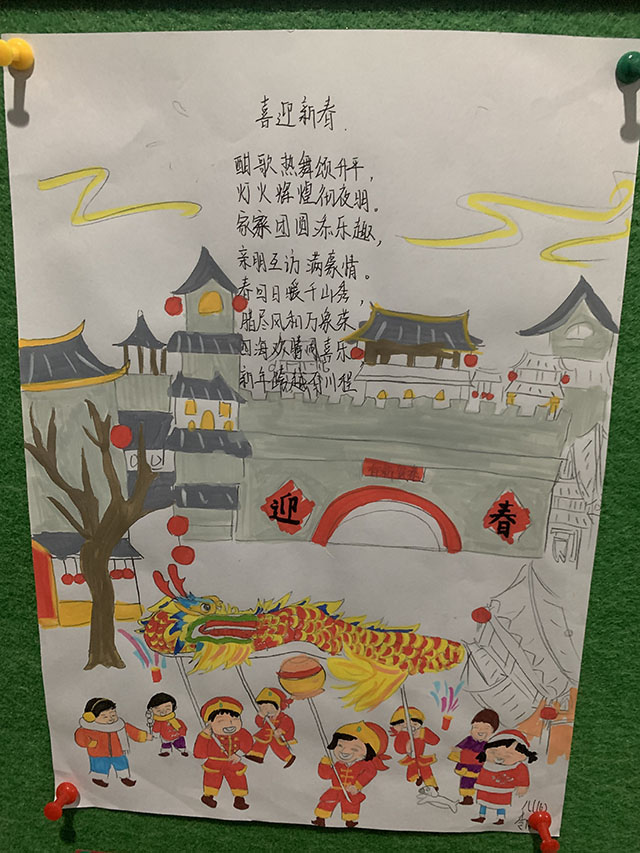 喜迎新春
酣歌热舞颂升平，
灯火辉煌彻夜明。
家家团圆添乐趣，
亲朋互访满豪情。
春回日暖千山秀，
腊尽风和万象荣
四海欢腾闻喜乐
新年跨越有川程
迎 春